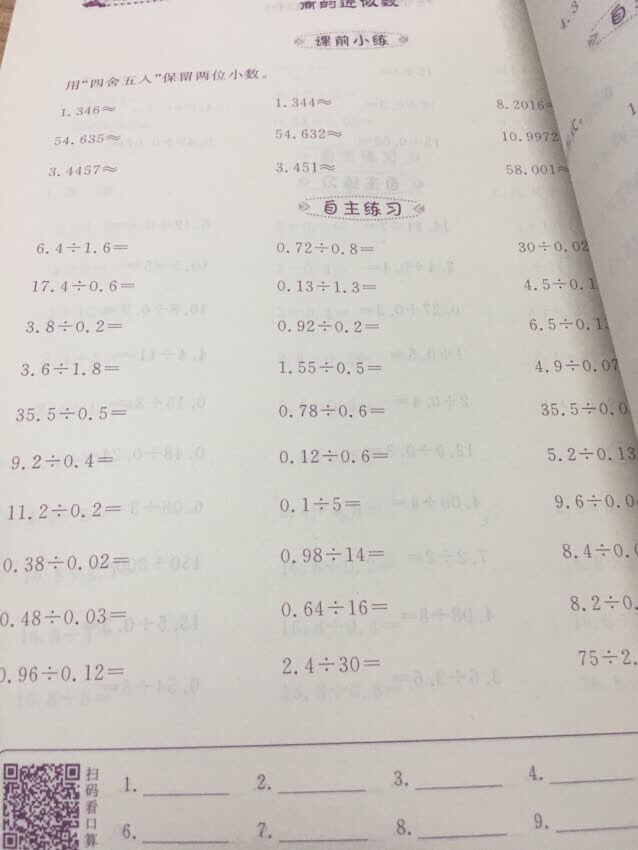 商的近似数
课前小练
用“四舍五入”保留两位小数。
1.346≈ 1.344≈ 8.2016≈
54.635≈ 54.632≈ 10.9972
3.4457≈ 3.451≈ 58.001≈
自主练习
6.4÷1.6= 0.72÷0.8= 30÷0.02
17.4÷0.6= 0.13÷1.3= 4.5÷0.1
3.8÷0.2= 0.92÷0.2= 6.5÷0.13
3.6÷1.8= 1.55÷0.5= 4.9÷0.07
35.5÷0.5= 0.78÷0.6= 35.5÷0.0
9.2÷0.4= 0.12÷0.6= 5.2÷0.13
11.2÷0.2= 0.1÷5= 9.6÷0.04
0.38÷0.02= 0.98÷14= 8.4÷0.0
0.48÷0.03= 0.64÷16= 8.2÷0.
0.96÷0.12= 2.4÷30= 75÷2.
扫码看口算
1. 2. 3. 4.
6. 7. 8. 9.